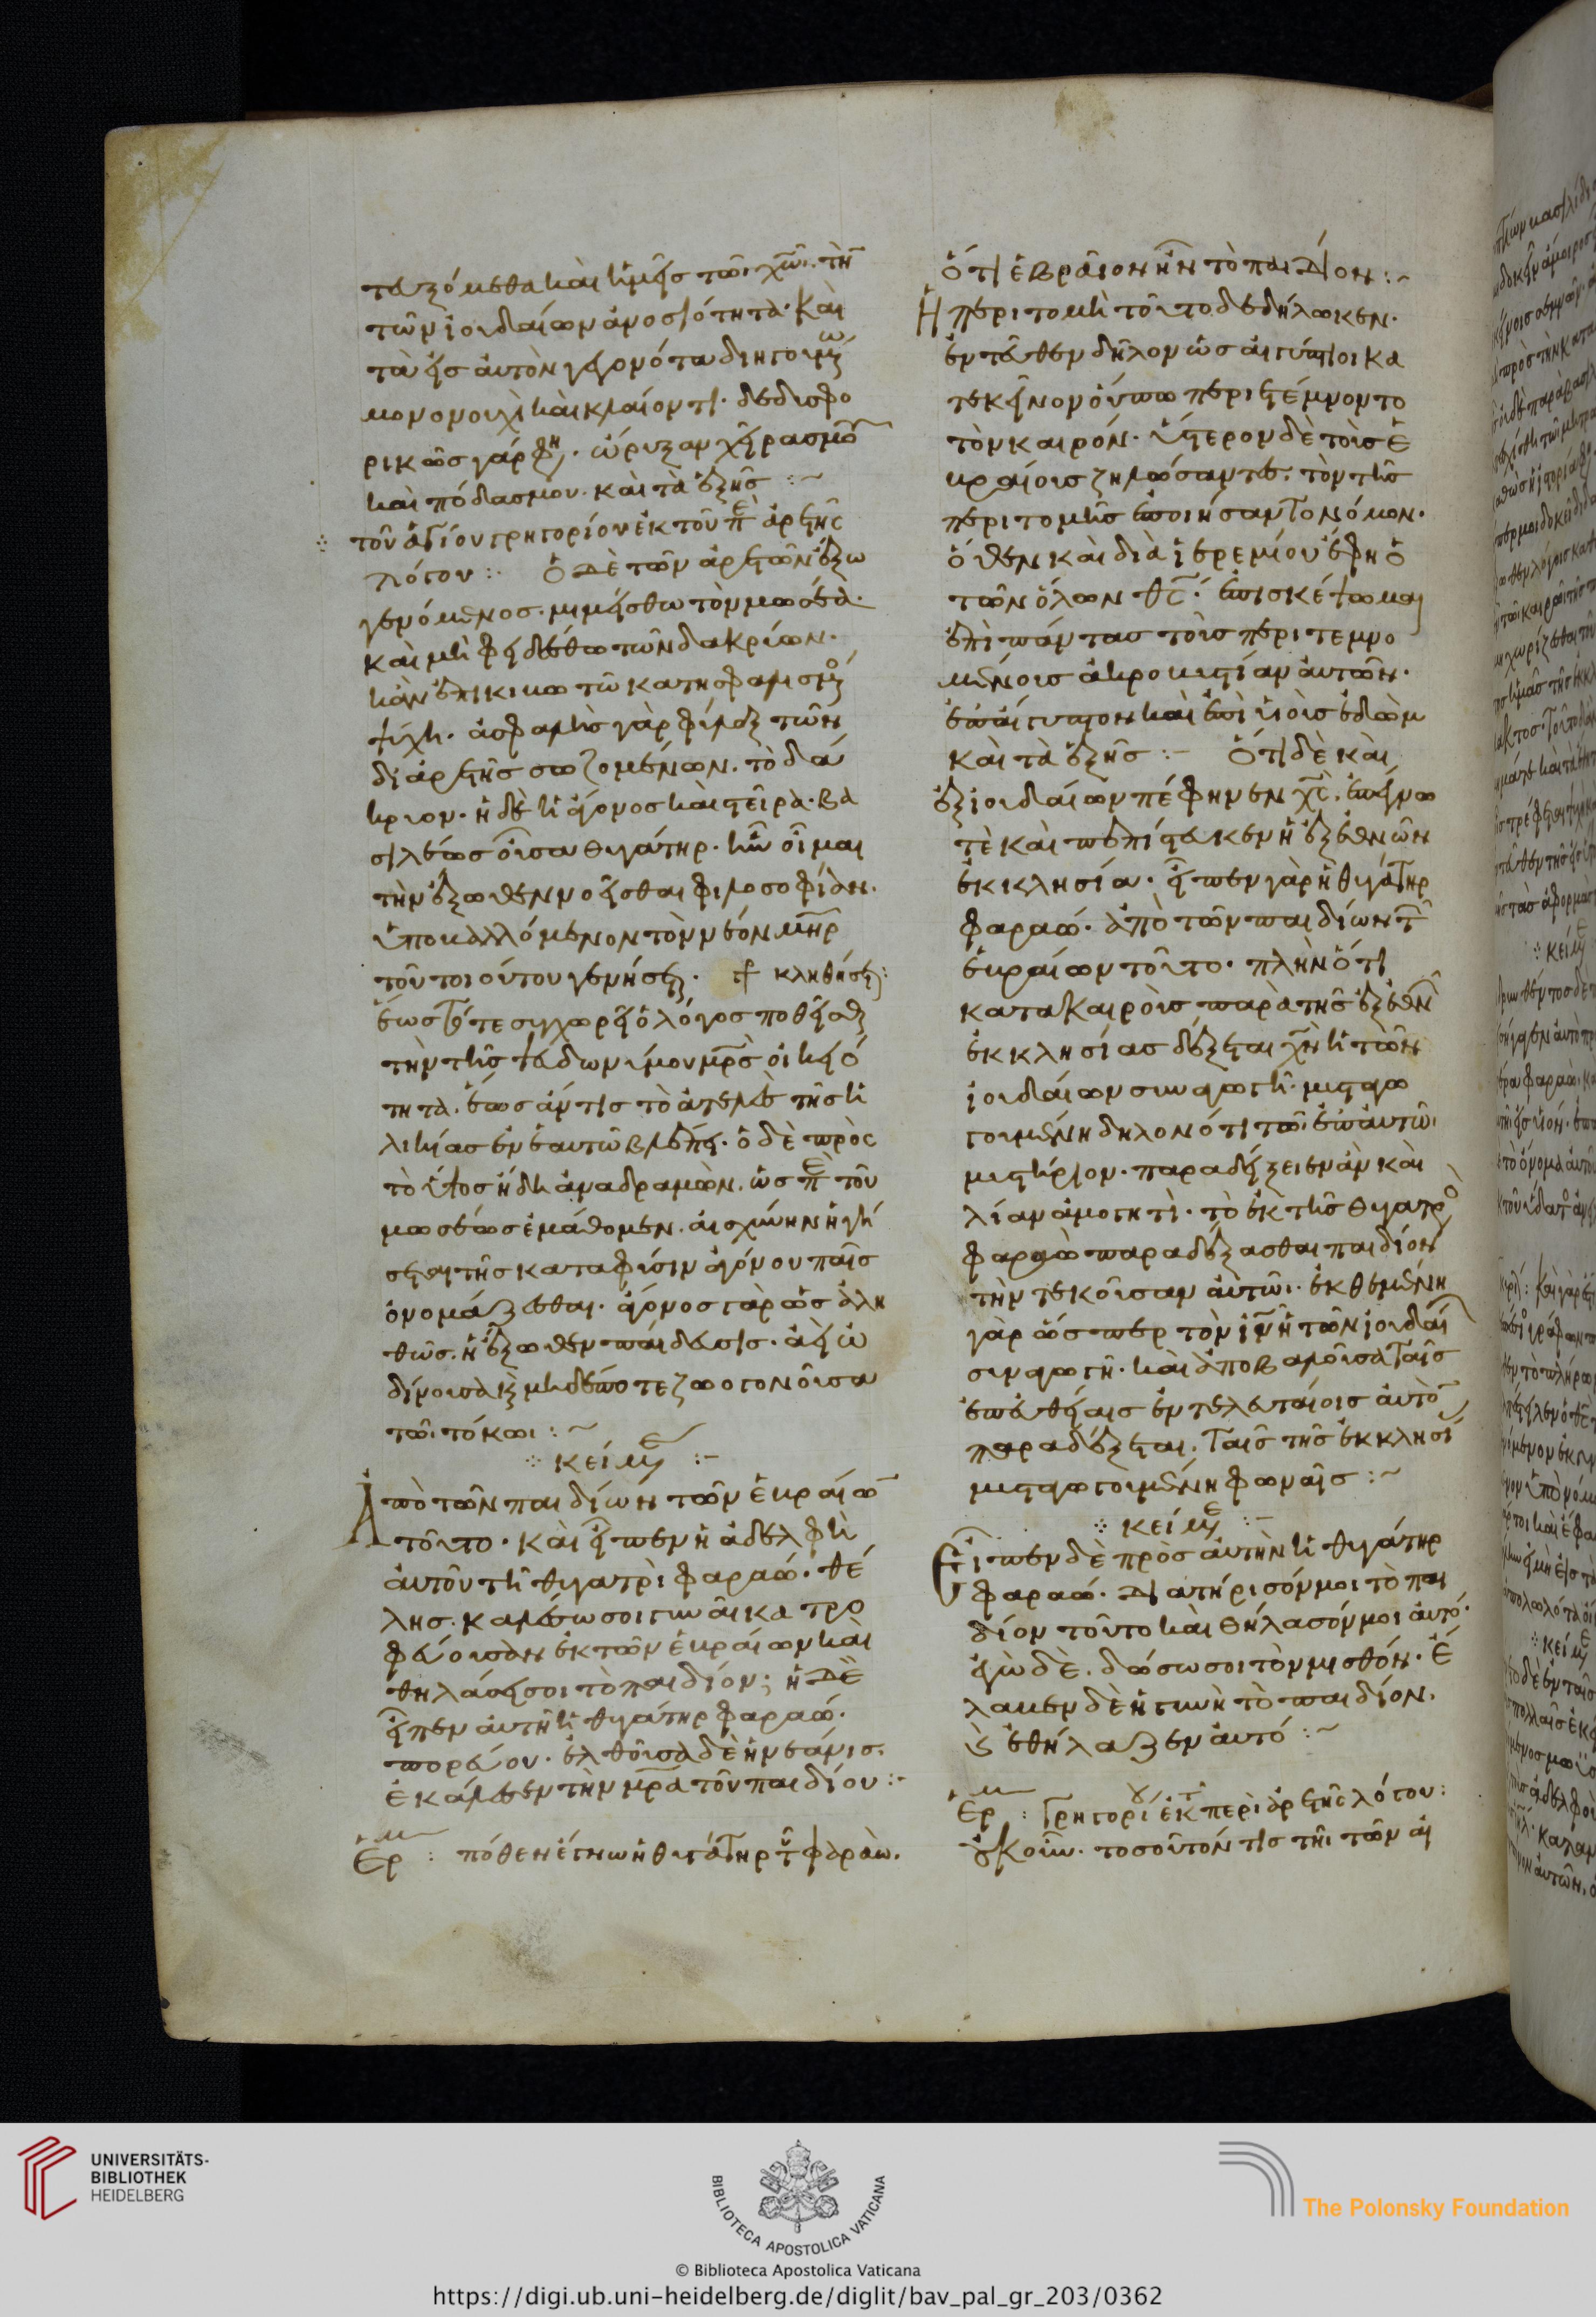 τευξόμεθα καὶ ἡμεῖς τῶι χω̅ι. τὴν
τῶν ἰουδαίων ἀνοσιότητα· καὶ
τὰ εἰς αὐτὸν γεγονότα διηγουμ
μονονουχὶ καὶ κλαίοντι. δευτερο
ρικῶς γάρ φη. ὤρυξαν χεῖράς μου
καὶ πόδας μου. καὶ τὰ ἑξῆς :~
τοῦ ἁγίου γρηγορίου ἐκ τοῦ π ἀρετῆς
λόγου : ὁ δὲ τῶν ἀρετῶν ἔξω
γενόμενος. μιμείσθω τὸν μωσέα.
καὶ μὴ φειδέσθω τῶν δακρύων.
κἂν
ψυχὴ. ἀσφαλὴς γὰρ φύλαξ τῶν
δι ἀρετῆς σωζομένων. τὸ δά
κρυον. ἡ δὲ ἄγονος καὶ στεῖρα. βα
σιλέως οὖσα θυγάτηρ. ἣν οἶμαι
τὴν ἔξωθεν νοεῖσθαι φιλοσοφίαν.
ὑποβαλλόμενον τὸν νέον μηρ
τοῦ τοιούτου γενήσεται. κληθήσεται:
ἕως τότε συγχωρεῖ ὁ λόγος
τὴν τῆς ψευδωνύμου μρς οἰκειό
τητα. ἕως ἄν τις τὸ ἀτελὲς τῆς ἡ
λικίας ἐν ἑαυτῶ βλέπει. ὁ δὲ πρὸς
τὸ ὕψος ἤδη ἀναδραμὼν. ὡς π τοῦ
μωσέως ἐμάθομεν. αἰσχύνην ἡγή
σεται τῆς κατα φύσιν ἀγόνου παῖς
ὀνομάζεσθαι. ἄγονος γὰρ ὡς ἀλη
θῶς. ἡ ἔξωθεν παίδευσις. ἀεὶ ὠ
δίνουσα καὶ μηδέποτε ζωογονοῦσα
τῶι τόκωι :~
κείμε :~
Ἀπὸ τῶν παιδίων τῶν ἑβραίων
τοῦτο. καὶ εἶπεν ἡ ἀδελφὴ
αὐτοῦ τῆ θυγατρὶ φαραώ. θέ
λης. καλέσω σοι γυναῖκα τρο
φεύουσαν ἐκ τῶν ἑβραίων καὶ
θηλάσει σοι τὸ παιδίον; ἡ δὲ
εἶπεν αὐτῆ ἡ θυγάτηρ φαραώ.
πορεύου. ἐλθοῦσα δὲ ἡ νεάνις.
ἐκάλεσεν τὴν μρα τοῦ παιδίου :~
Ερμ : πόθεν ἔγνω ἡ θυγάτηρ τοῦ φαραὼ.
ὅτι ἑβραῖον ἦν τὸ παιδίον :~
Ἡ περιτομὴ τοῦτο δεδήλωκεν.
ἐντεῦθεν δῆλον ὡς αἰγύπτιοι κα
τ ἐκεῖνον οὔπω περιετέμνοντο
τὸν καιρόν. ὕστερον δὲ τοὺς ἑ
βραίους ζηλώσαντες. τὸν τῆς
περιτομῆς ἐποιήσαντο νόμον.
ὅθεν καὶ διὰ ἱερεμίου ἔφη ὁ
τῶν ὅλων θς. ἐπισκέψωμαι
ἐπὶ πάντας τοὺς περιτεμνο
μένους ἀκροβυστίαν αὐτῶν.
ἐπ αἴγυπτον καὶ ἐπὶ υἱοὺς ἐδὼμ
καὶ τὰ ἑξῆς :~ ὅτι δὲ καὶ
ἐξ ἰουδαίων πέφηνεν χς. ἐπέγνω
τὲ καὶ πεπίστευκεν ἡ ἐξ ἐθνῶν
ἐκκλησία. εἶπεν γὰρ ἡ θυγάτηρ
φαραώ. ἀπὸ τῶν παιδίων τῶν
ἑβραίων τοῦτο. πλὴν ὅτι
κατα καιροὺς παρὰ τῆς ἐξ ἐθνῶν
ἐκκλησίας δέξεται χν ἡ τῶν
ἰουδαίων συναγωγὴ. μυσταγω
γουμένη δηλονότι τῶ ἐπ αὐτῶ.
μυστήριον. παραδείξειεν ἂν καὶ
λίαν ἀμογητὶ. τὸ ἐκ τῆς θυγατρὸς
φαραὼ παραδέξασθαι παιδίον
τὴν τεκοῦσαν αὐτῶι. ἐκθεμένη
γὰρ ὥσπερ τὸν ιν ἡ τῶν ἰουδαίων
συναγωγή. καὶ ἀποβαλοῦσα ταῖς
ἀπειθείαις ἐν τελευταίοις αὐτὸν
παραδέξεται. ταῖς τῆς ἐκκλησίας
μυσταγωγουμένη φωναῖς :~
κείμε :~
Εἶπεν δὲ πρὸς αὐτὴν ἡ θυγάτηρ
φαραώ. διατήρισόν μοι τὸ παι
δίον τοῦτο καὶ θήλασόν μοι αὐτό.
ἐγὼ δὲ. δώσω σοι τὸν μισθόν. ἔ
λαβεν δὲ ἡ γυνὴ τὸ παιδίον.
καὶ ἐθήλαζεν αὐτό :~
Ερμ : Γρηγορίου ἐκ τ περὶ ἀρετῆς λόγου :
οὐκοῦν. τοσοῦτόν τις τῆι τῶν αἰ
UNIVERSITÄTS-
BIBLIOTHEK
HEIDELBERG
BIBLIOTECA APOSTOLICA VATICANA
The Polonsky Foundation
© Biblioteca Apostolica Vaticana
https://digi.ub.uni-heidelberg.de/diglit/bav_pal_gr_203/0362